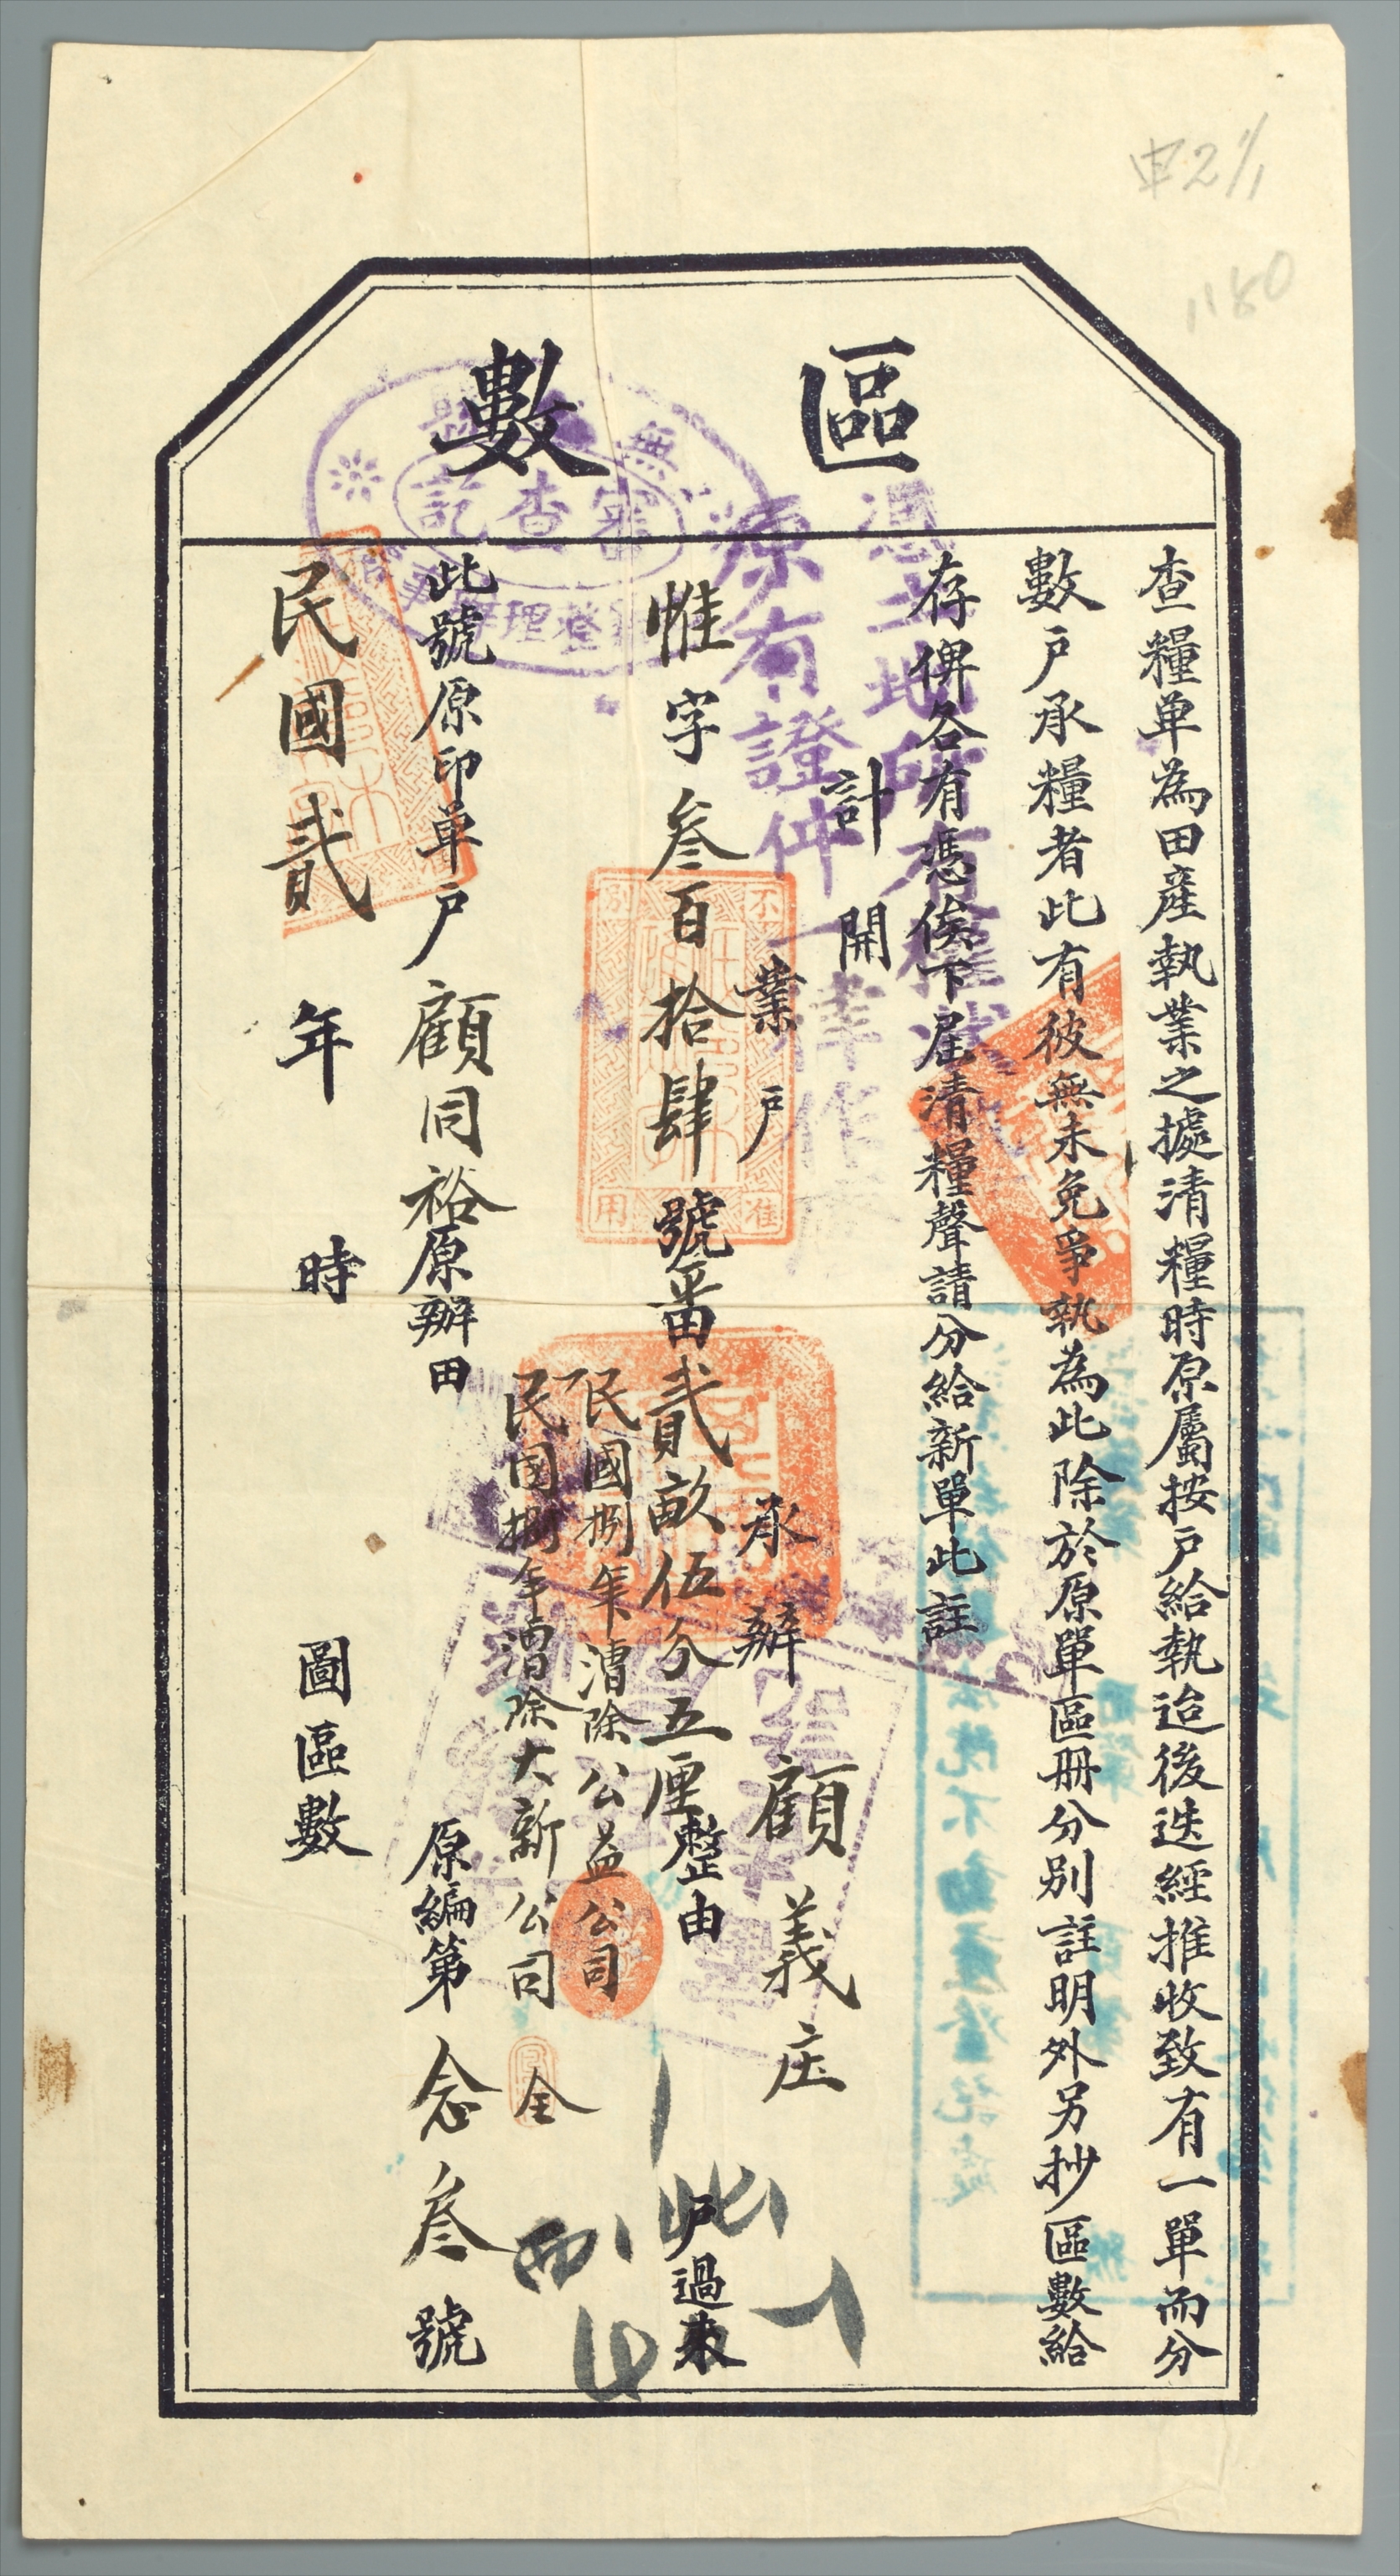 區數
查糧单為田產執業之據清糧時原屬按戶給執迨後迭經推收致有一單而分
數戶承糧者此有彼無未免爭執為此除於原單區册分别註明外另抄區數給
存俾各有憑俟下屆清糧聲請分給新單此註
計開
業戶 承辦 顧義庄
惟字叁百拾肆號番貳畝伍分五厘整由 戶過來
民國捌年漕除公益公司
民國捌年漕除大新公司 仝
此號原印单戶顧同裕原辦田 原編第念叁號
民國貳年 時 圖區數
審查訖
憑土地所有權狀
原有證件一律作廢
申2
1180